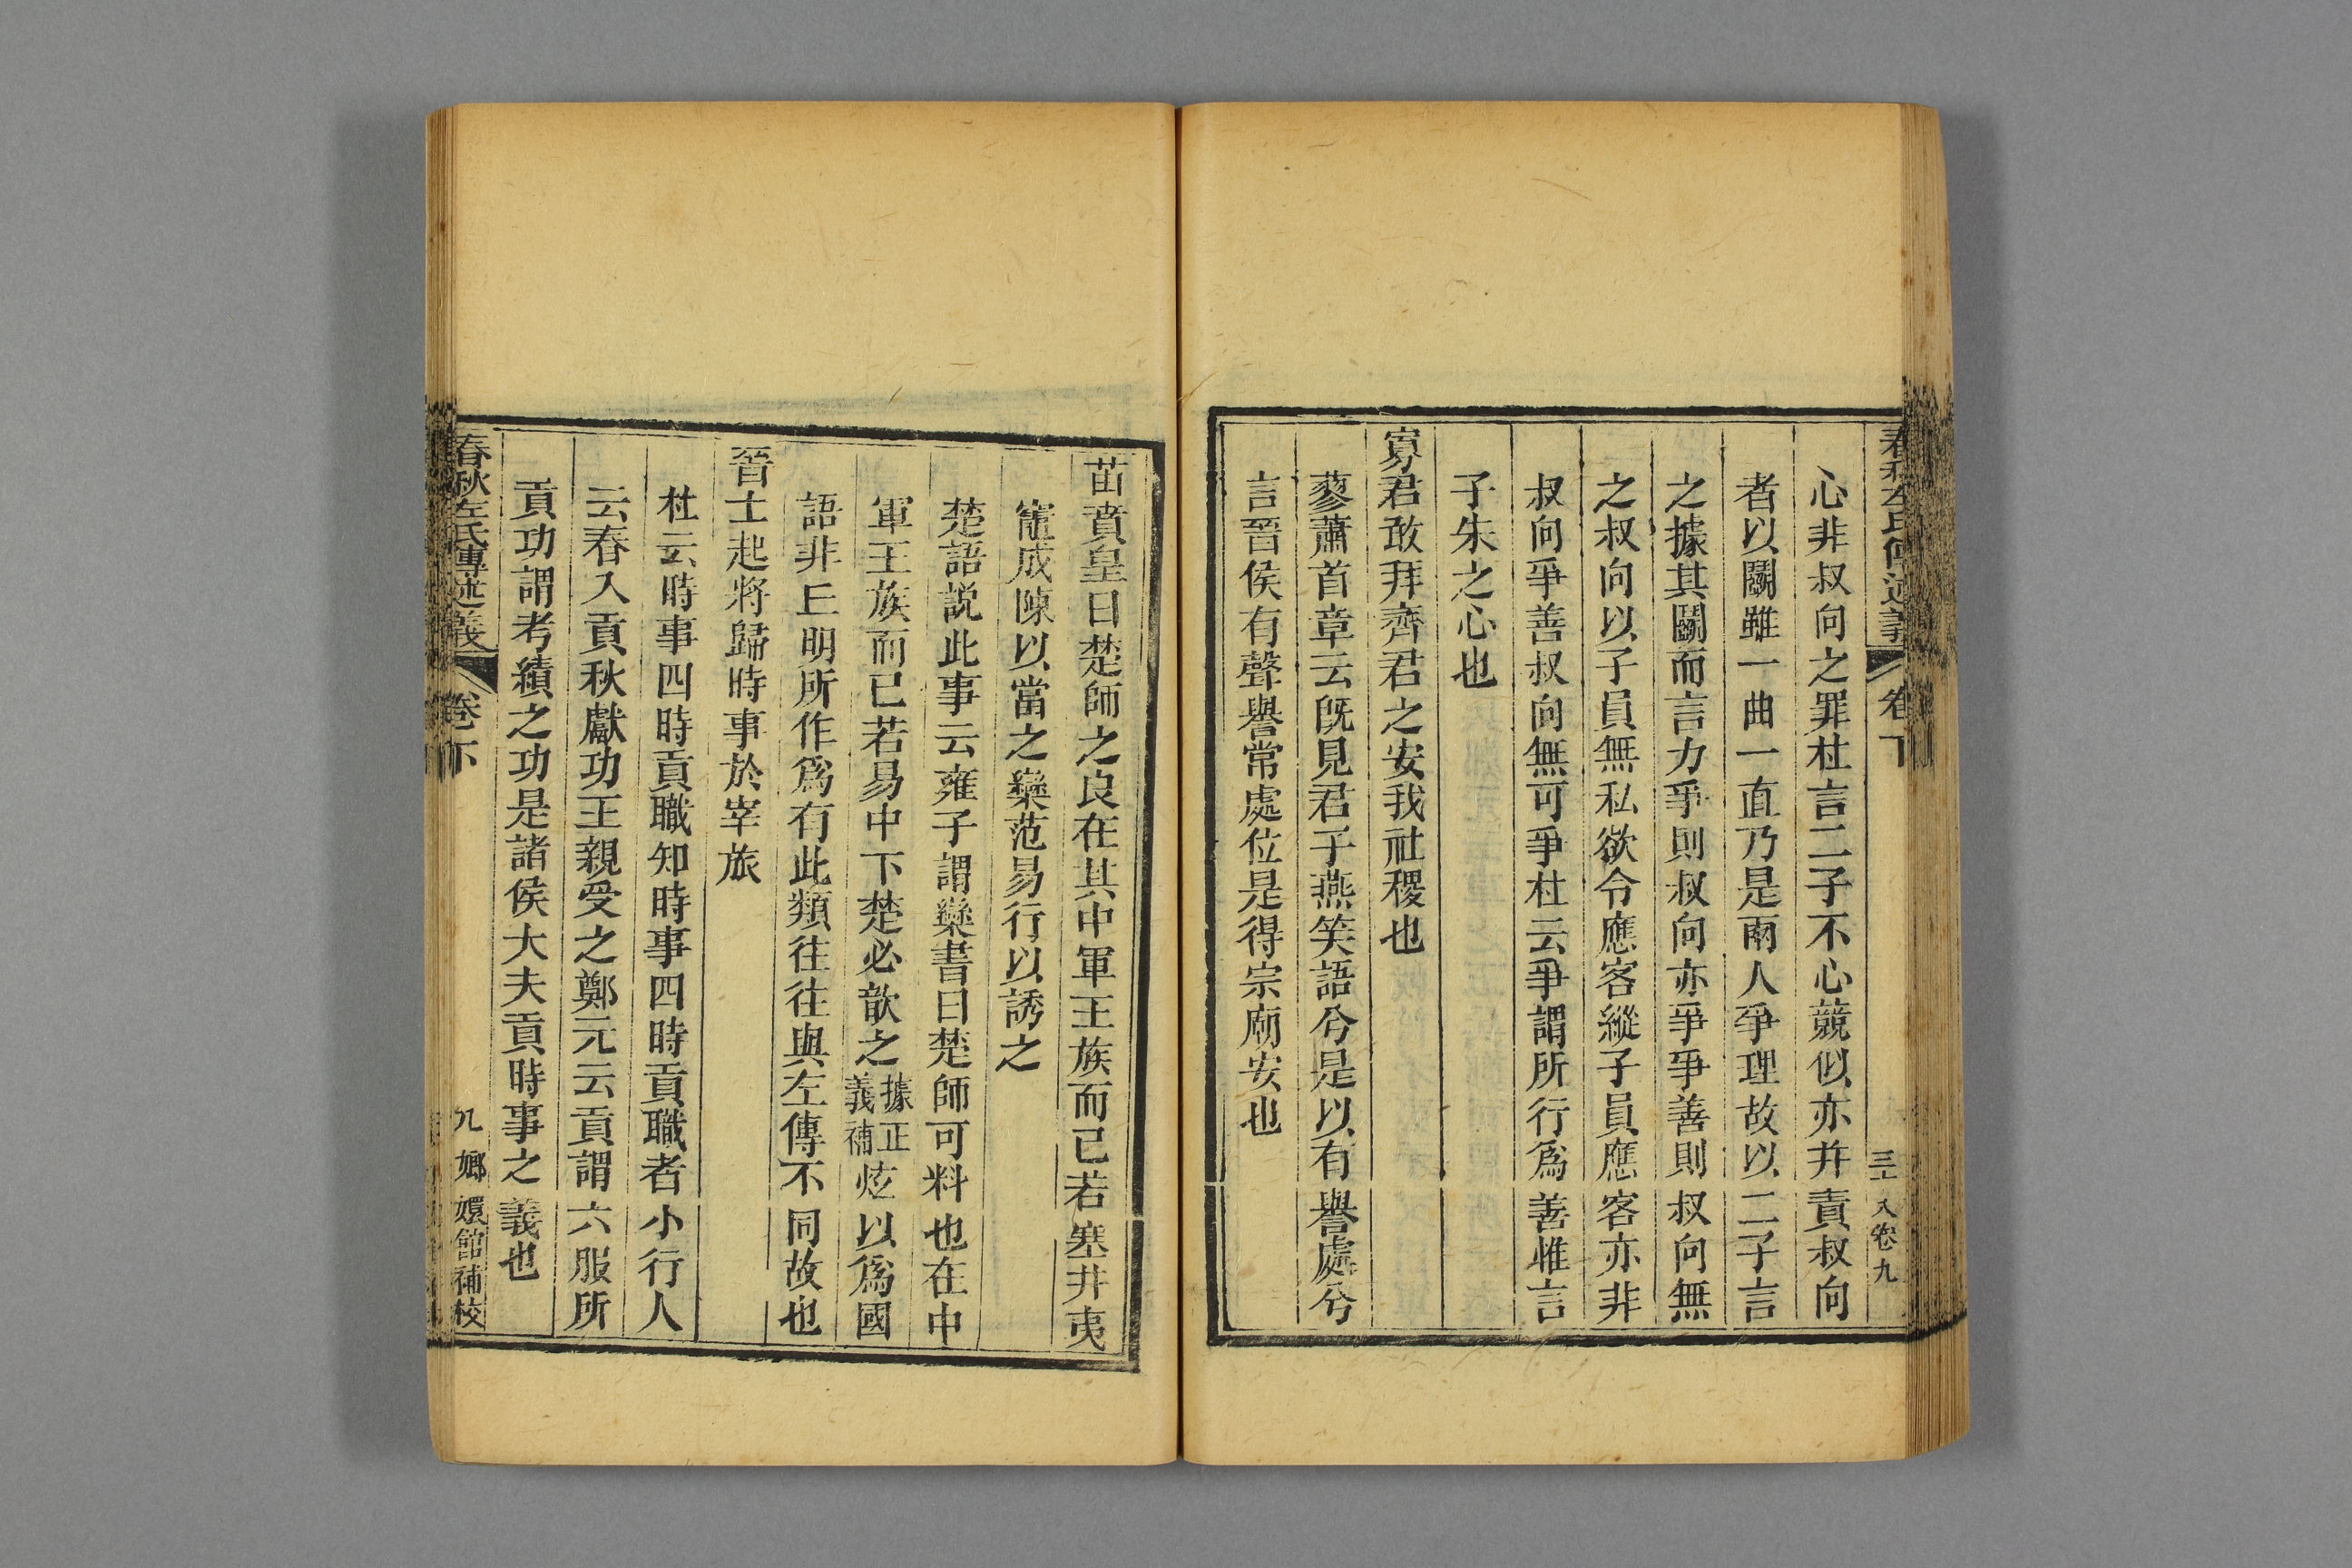 春秋左氏傳述義
卷下
三 八卷九
心非叔向之罪杜言二子不心競似亦并責叔向
者以鬭雖一曲一直乃是兩人爭理故以二子言
之據其鬭而言力爭則叔向亦爭爭善則叔向無
之叔向以子員無私欲令應客縱子員應客亦非
叔向爭善叔向無可爭杜云爭謂所行爲善惟言
子朱之心也
寡君敢拜齊君之安我社稷也
蓼蕭首章云旣見君子燕笑語兮是以有譽處兮
言晉侯有聲譽常處位是得宗廟安也
苗賁皇曰楚師之良在其中軍王族而已若塞井夷
竈成陳以當之欒范易行以誘之
楚語說此事云雍子謂欒書曰楚師可料也在中
軍王族而已若易中下楚必歆之據正義補炫以爲國
語非丘明所作爲有此類往往與左傳不同故也
晉士起將歸時事於宰旅
杜云時事四時貢職知時事四時貢職者小行人
云春入貢秋獻功王親受之鄭元云貢謂六服所
貢功謂考績之功是諸侯大夫貢時事之義也
春秋左氏傳述義
卷下
九 嫏嬛館補校